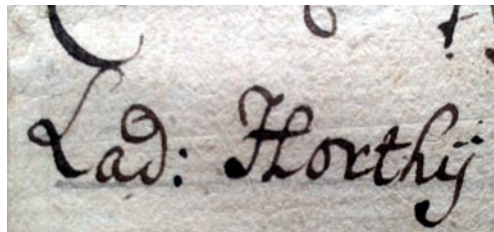 Lad: Horthÿ